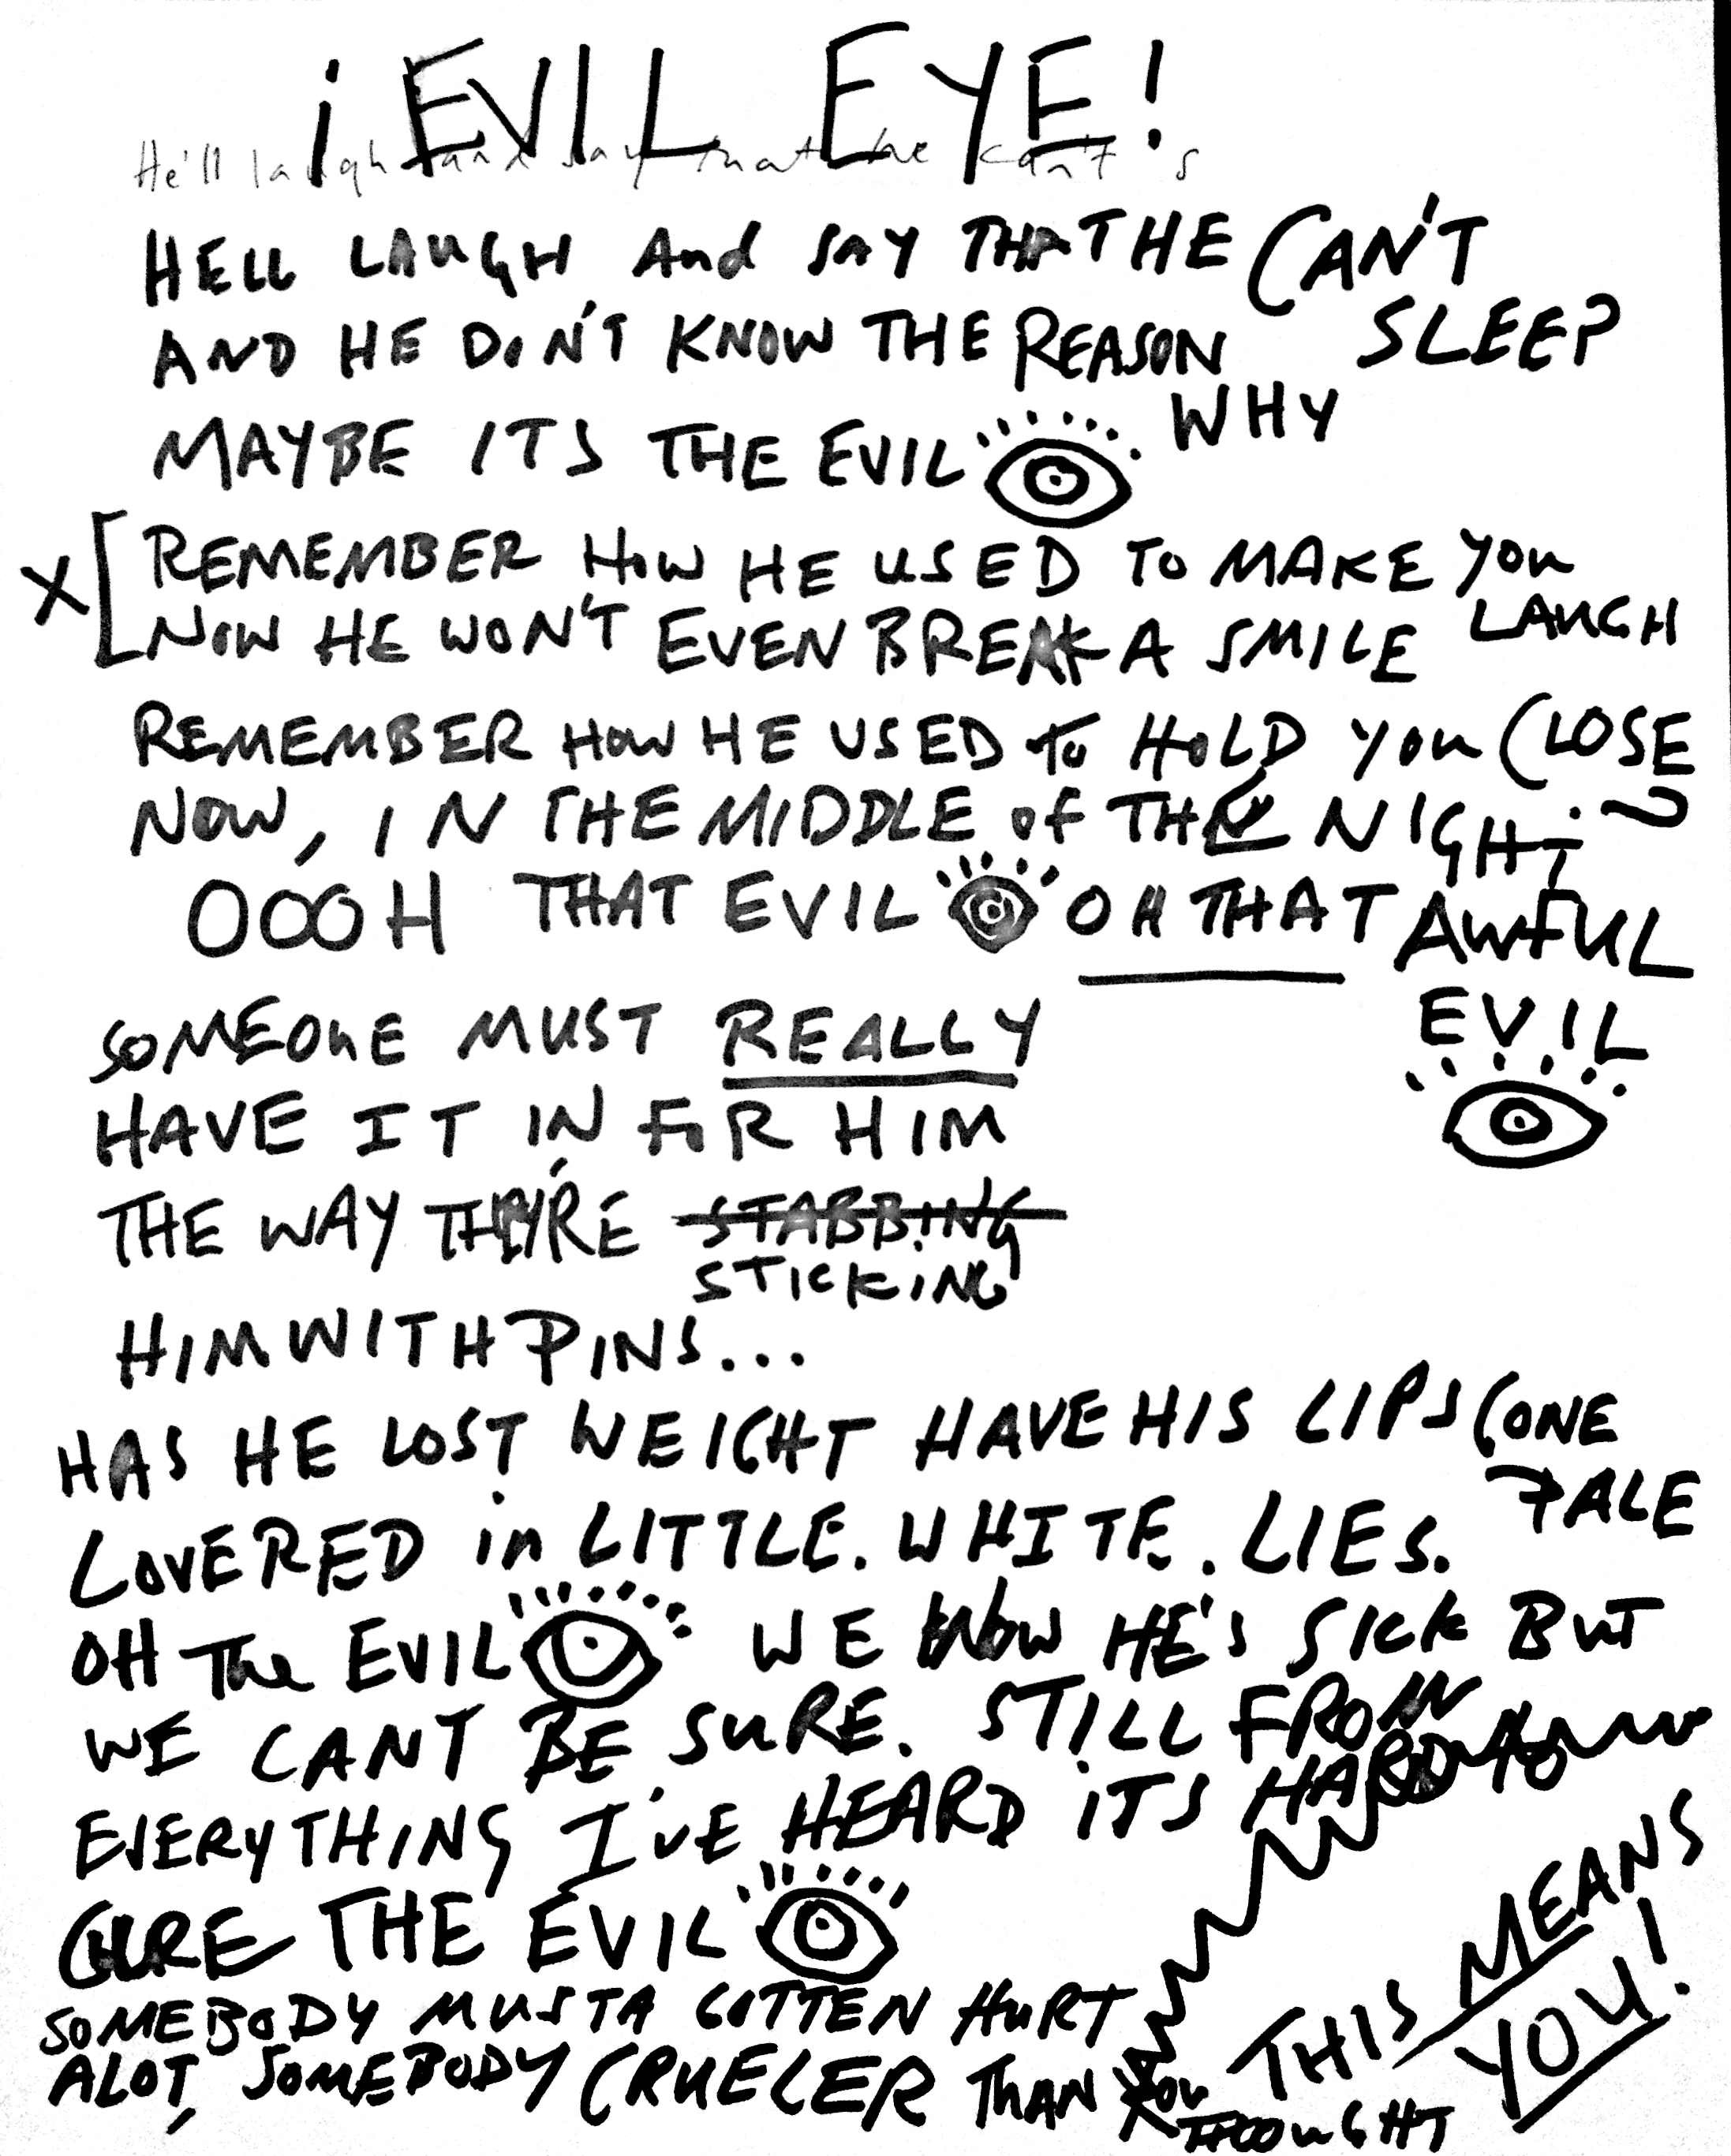 ¡ EVIL EYE!
He'll laugh and say that he can't s
HELL LAUGH And SAY THATHE CAN'T
SLEEP
AND HE DON'T KNOW THE REASON
WHY
MAYBE ITS THE EVIL
X [ REMEMBER HOW HE USED TO MAKE YOU
LAUGH
NOW HE WON'T EVEN BREAK A SMILE
REMEMBER HOW HE USED TO HOLD YOU CLOSE
NOW, IN THE MIDDLE of THE NIGHT
OOOH THAT EVIL OH THAT AWFUL
EVIL
SOMEONE MUST REALLY
HAVE IT IN FOR HIM
THE WAY THEY'RE STABBING
STICKING
HIM WITH PINS...
HAS HE LOST WEIGHT HAVE HIS LIPS GONE
PALE
COVERED in LITTLE. WHITE. LIES.
OH The EVIL WE KNOW HE'S SICK BUT
WE CANT BE SURE. STILL FROM
EVERYTHING I'VE HEARD ITS HARD TO
CURE THE EVIL
SOMEBODY MUSTA GOTTEN HURT
ALOT, SOMEBODY CRUELER THAN YOU
THOUGHT
THIS MEANS
YOU!